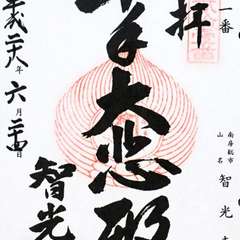 一番
南房総市
山名
智光
拝
手大悲殿
平成二八年六月二四
智光